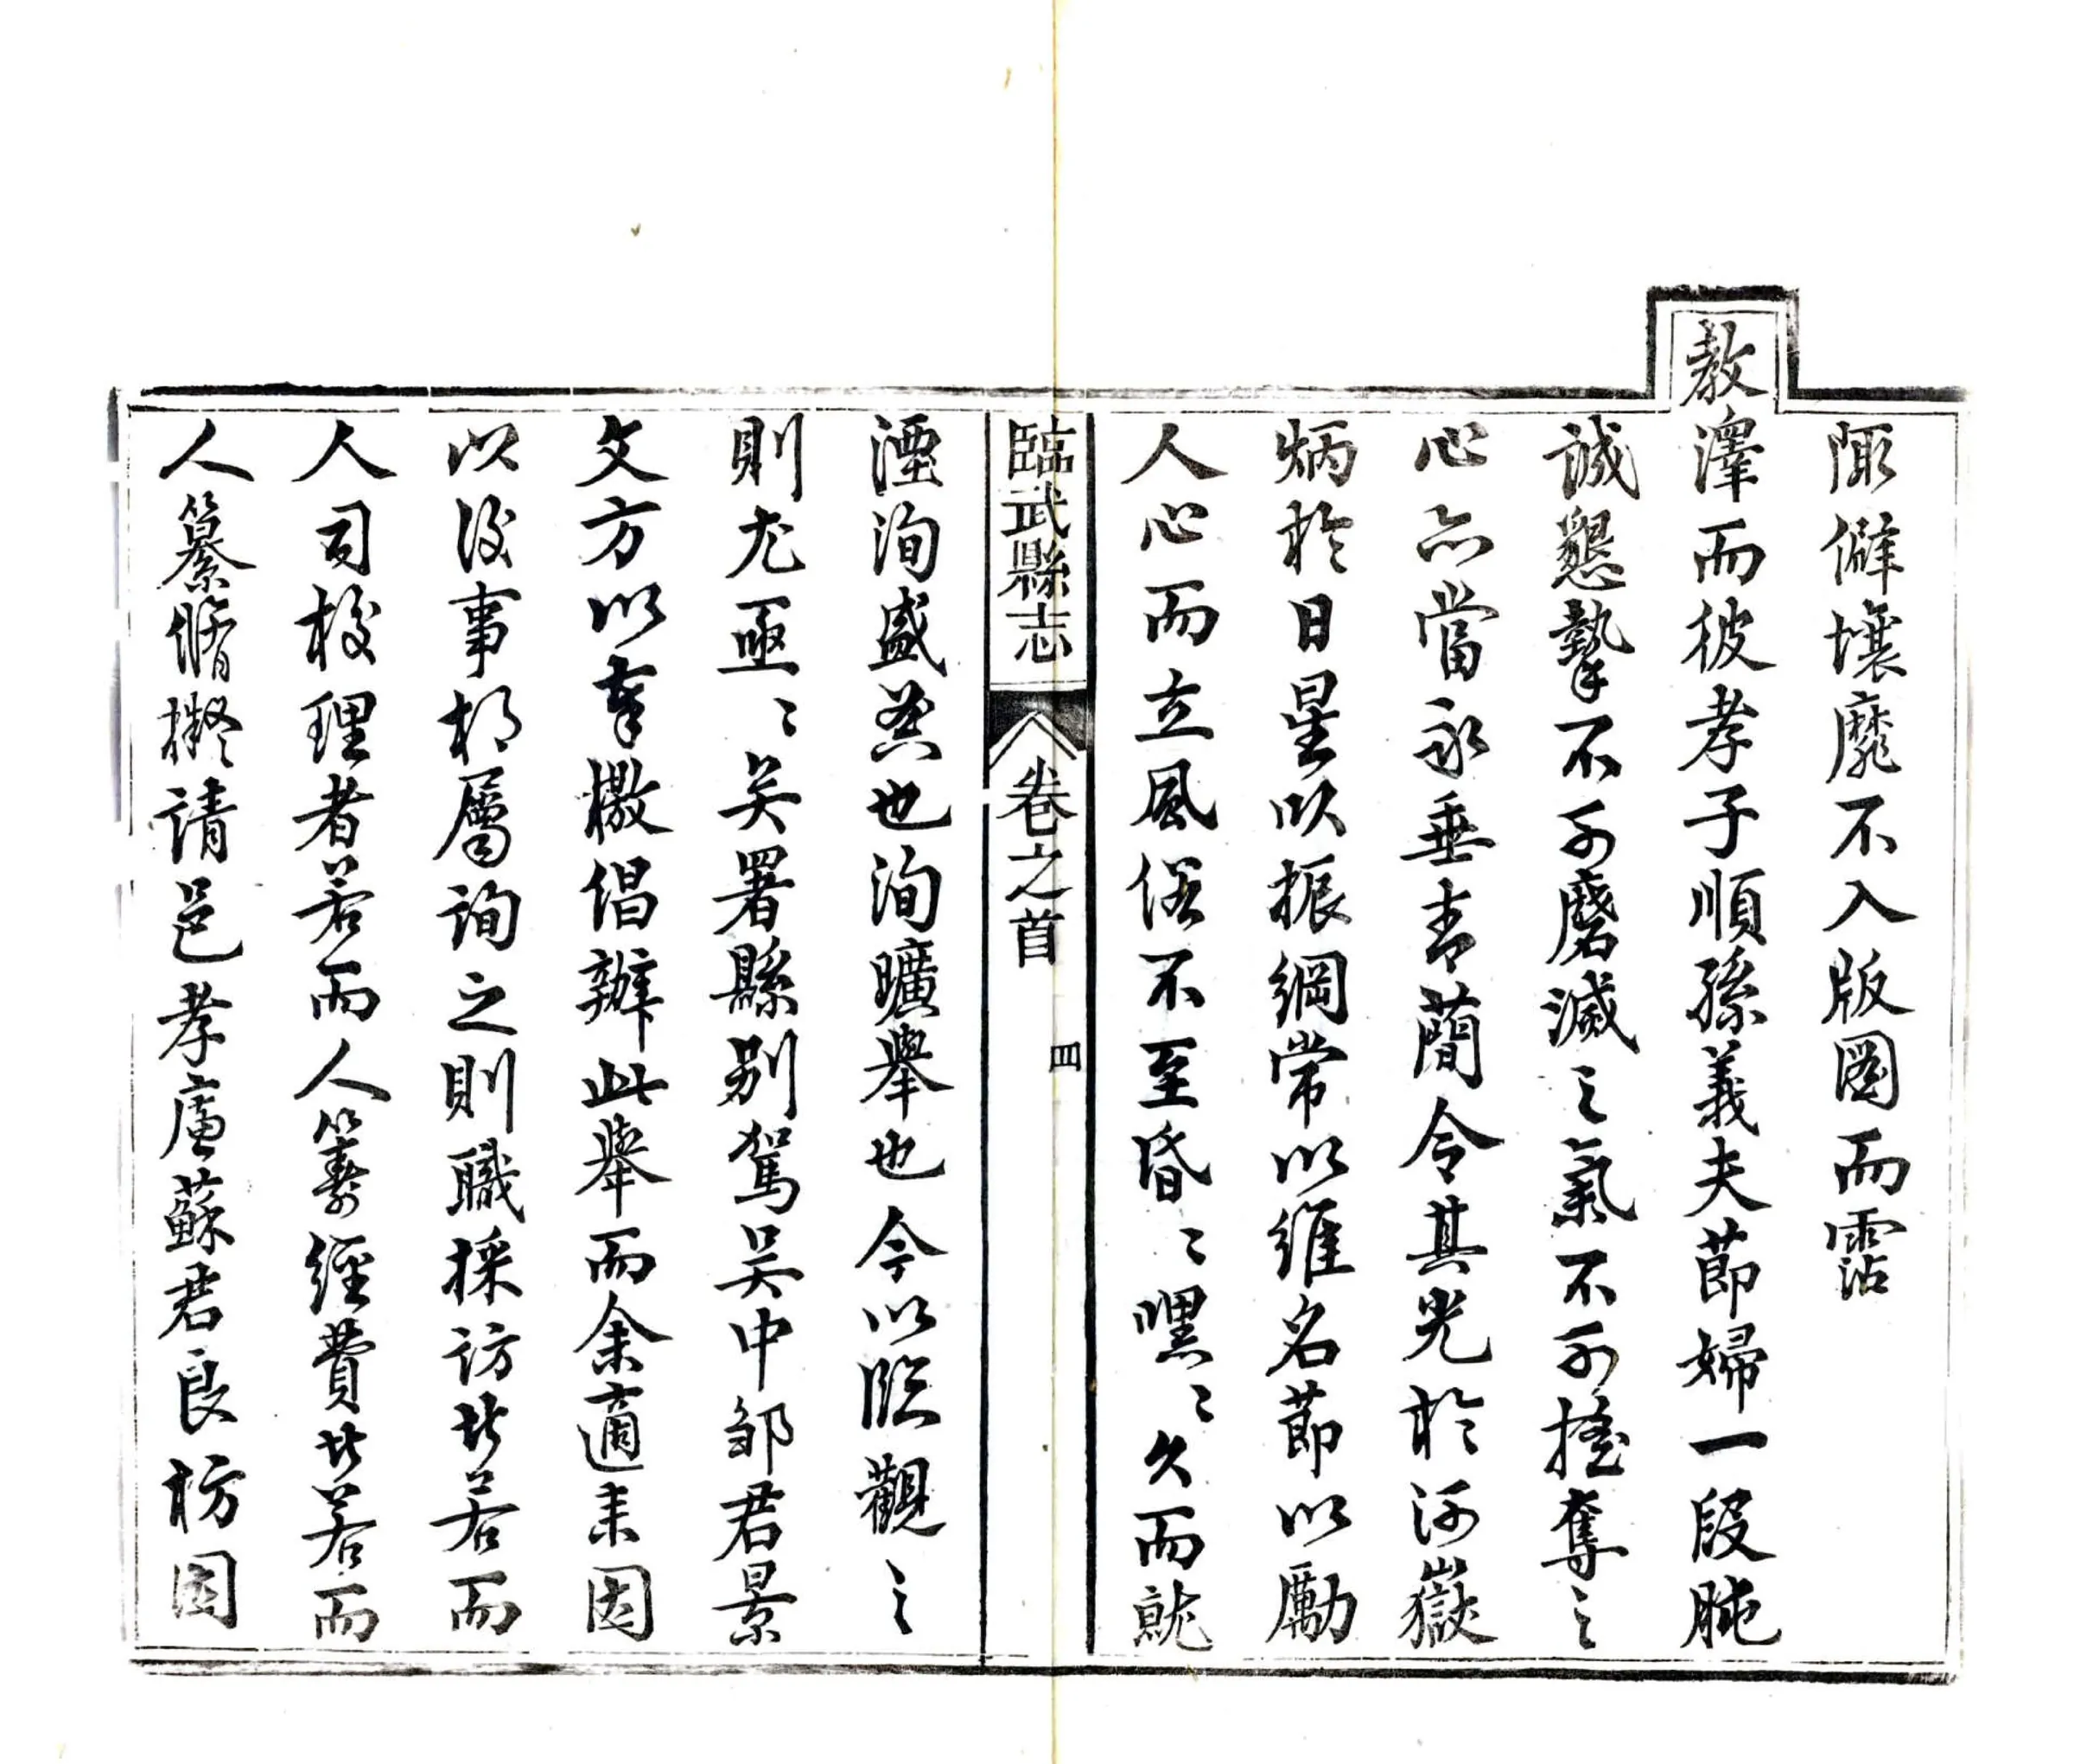 陬僻壤靡不入版圖而霑
教澤而彼孝子順孫義夫節婦一段肫
誠懇摯不可磨滅之氣不可搖奪之
心亦當永垂青簡令其光於河嶽
炳於日星以振綱常以維名節以勵
人心而立風俗不至昏〻嘿〻久而就
臨武縣志
卷之首
四
湮洵盛業也洵曠舉也今以臨觀之
則尤亟〻矣署縣別駕吳中鄒君景
文方以奉檄倡辦此舉而余適来因
以後事相屬詢之則職採訪者若而
人司校理者若而人籌經費者若而
人纂脩擬請邑孝廉蘇君良枋因